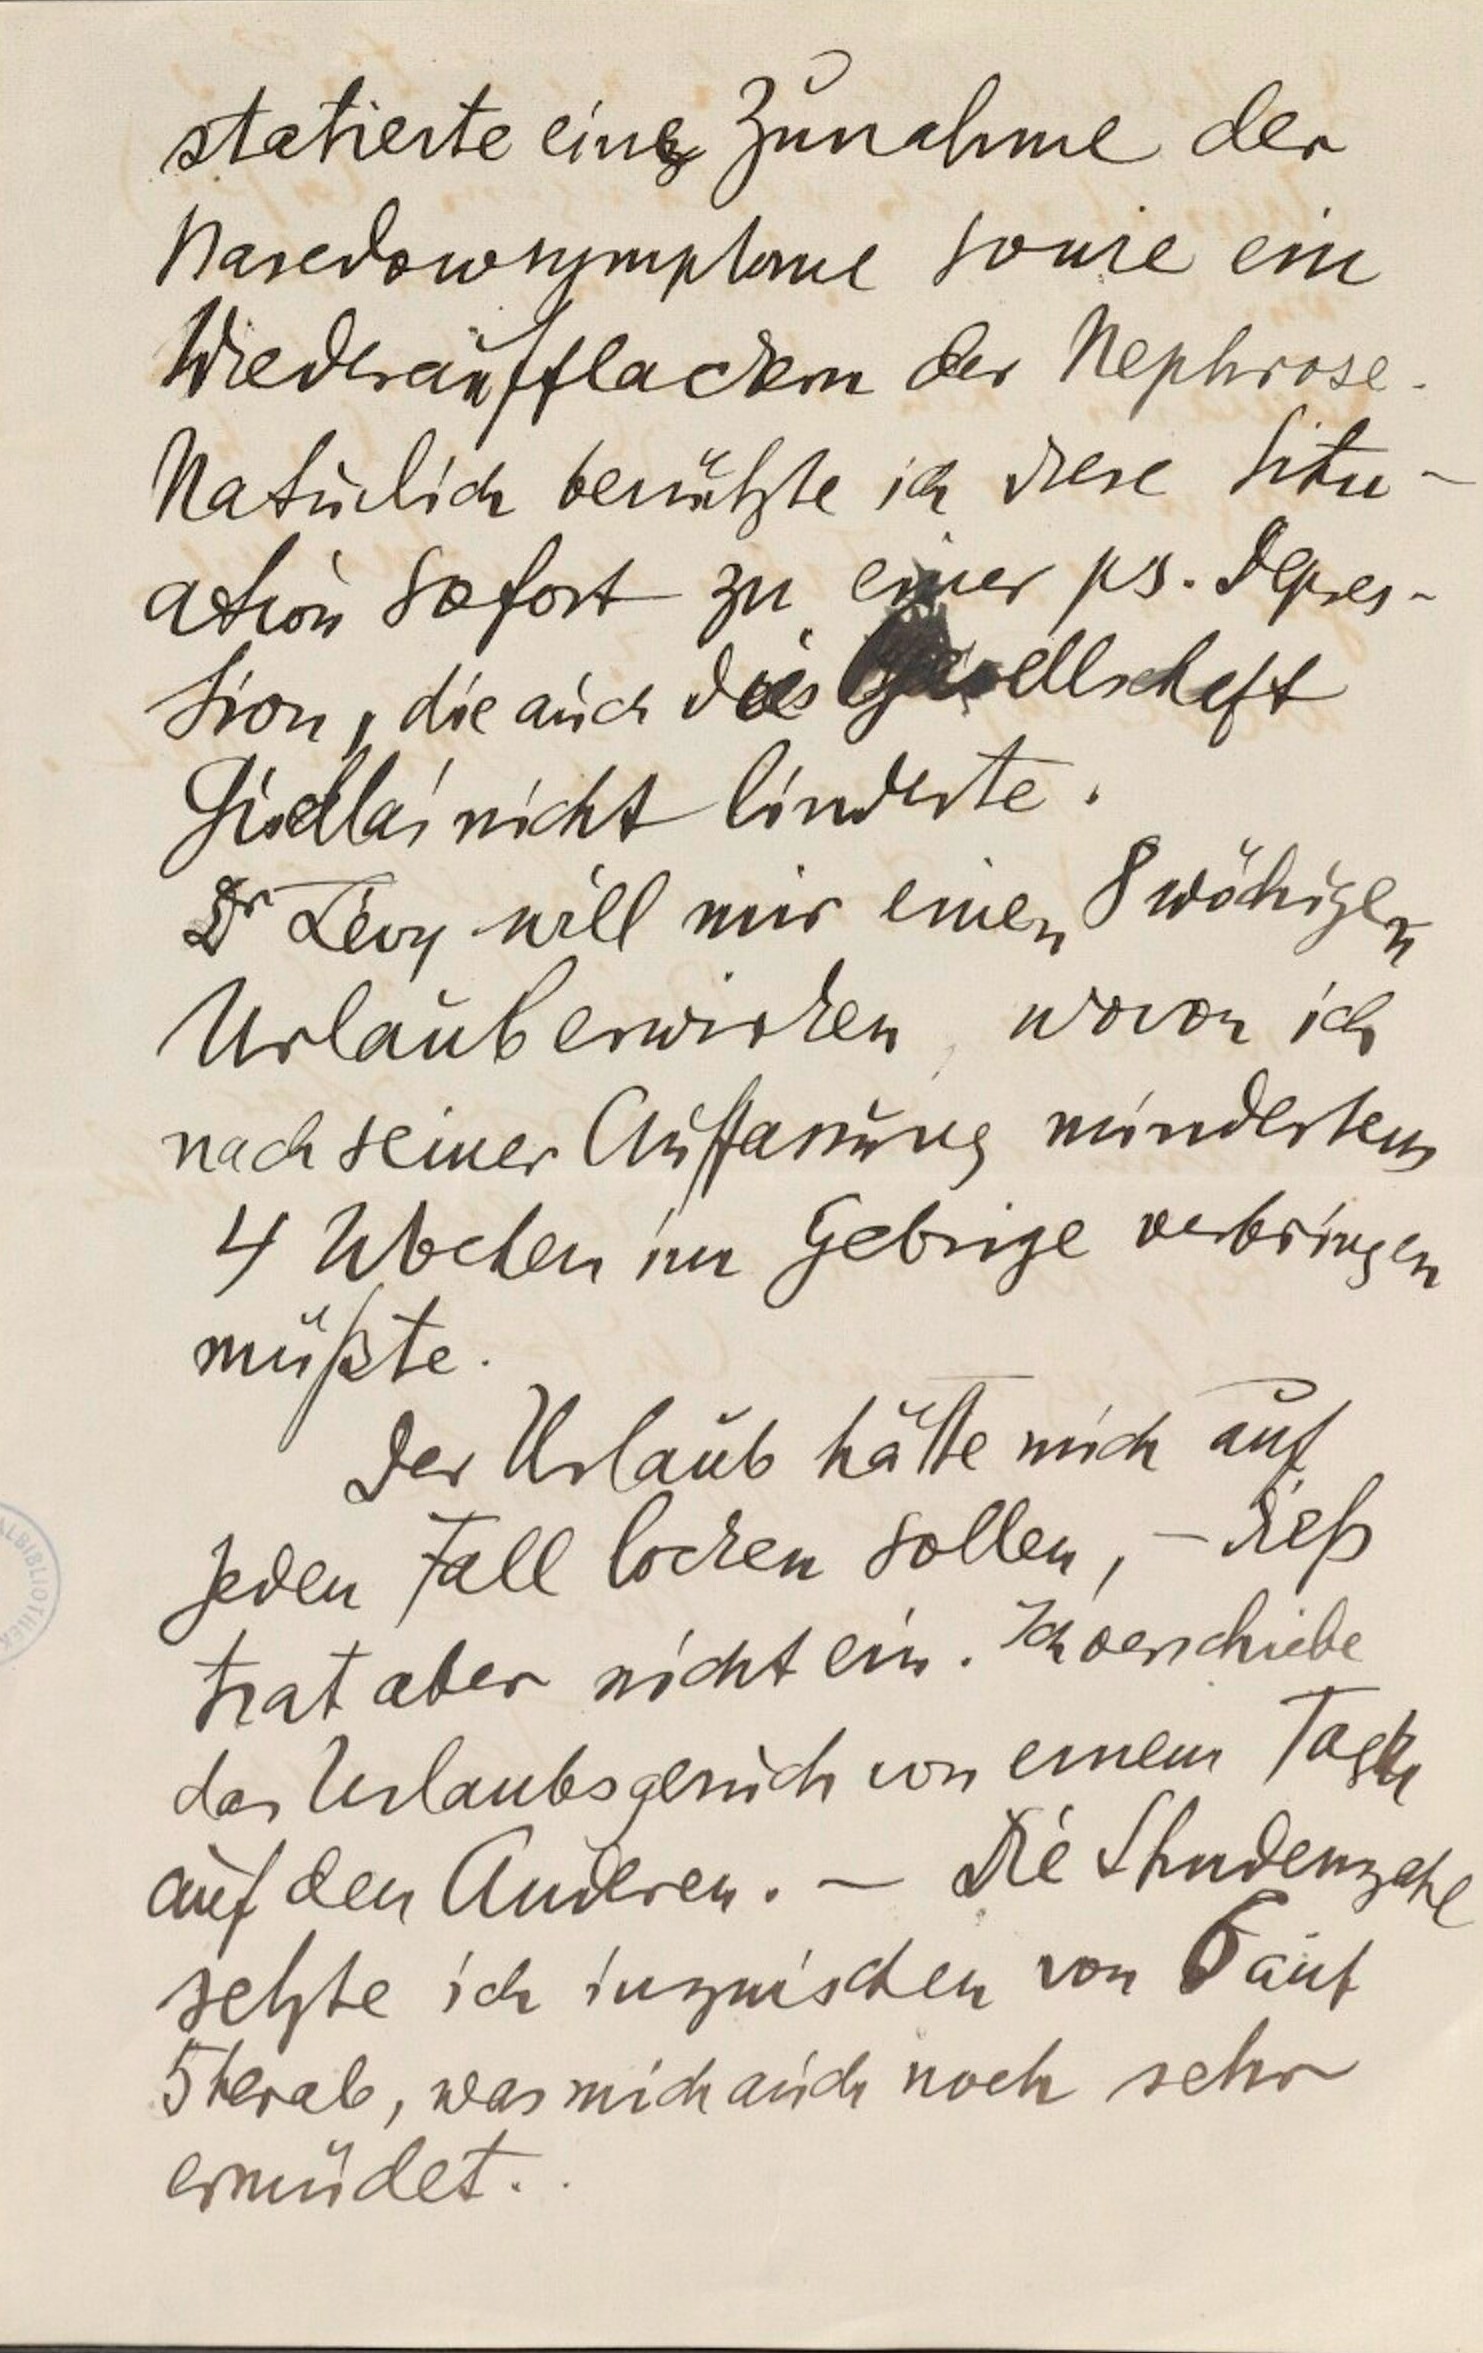 statierte eine Zunahme der
Basedowsymptome sowie ein
Wiederaufflackern der Nephrose.
Natürlich benützte ich diese Situ-
ation sofort zu einer ps. Depres-
sion, die auch die Gesellschaft
Gisellas nicht linderte.
Dr Lévy will mir einen 8 wöchigen
Urlaub erwirken, wovon ich
nach seiner Auffassung mindestens
4 Wochen im Gebirge verbringen
müßte.
Der Urlaub hätte mich auf
jeden Fall locken sollen, – dieß
trat aber nicht ein. Ich verschiebe
das Urlaubsgesuch von einem Tag
auf den Anderen. – Die Stundenzahl
setzte ich inzwischen von 6 auf
5 herab, was mich auch noch sehr
ermüdet.
ALBIBLIOTHEK